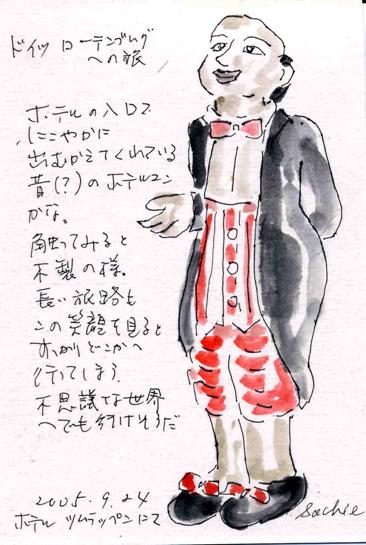 ドイツ ローテンブルグ
への旅
ホテルの入口で
にこやかに
出むかえてくれている
昔(?)のホテルマン
かな。
触ってみると
木製の様。
長い旅路も
この笑顔を見ると
すっかりどこかへ
行ってしまう
不思議な世界
へでも行けそうだ
2005.9.24
ホテル ツムラップンにて
Sachie